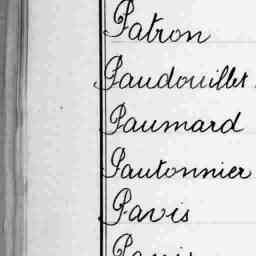 Patron
Paudouillet
Paumard
Pautonnier
Pavis